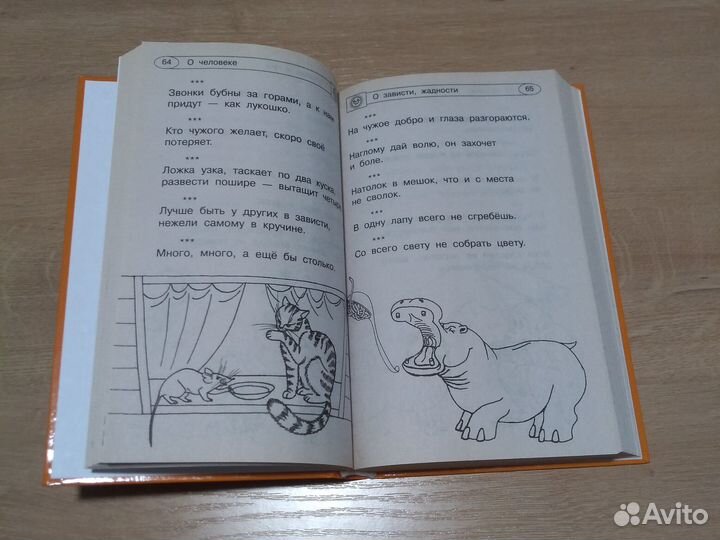 64 О человеке
***
Звонки бубны за горами, а к нам
придут — как лукошко.
***
Кто чужого желает, скоро своё
потеряет.
***
Ложка узка, таскает по два куска,
развести пошире — вытащит четыре
***
Лучше быть у других в зависти,
нежели самому в кручине.
***
Много, много, а ещё бы столько.
О зависти, жадности 65
***
На чужое добро и глаза разгораются.
***
Наглому дай волю, он захочет
и боле.
***
Натолок в мешок, что и с места
не сволок.
***
В одну лапу всего не сгребёшь.
***
Со всего свету не собрать цвету.
Avito